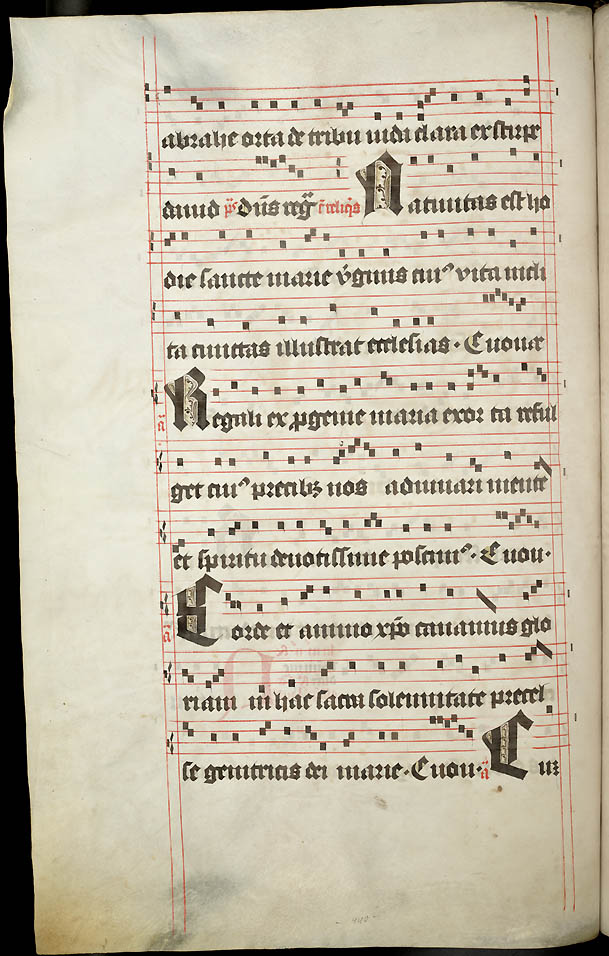 abrahe orta de tribu iuda clara ex stirpe
dauid ps Dns reg Natiuitas est ho
die sancte marie vginis cui9 vita incli
ta cunctas illustrat ecclesias. Euouae
a Regali ex pgenie maria exor ta reful
get cui9 precibz nos adiuuari mente
et spiritu deuotissime poscim9. Euou.
a Corde et animo xpo canamus glo
riam in hac sacra solemnitate precel
se genitricis dei marie. Euou. a Cuz
440